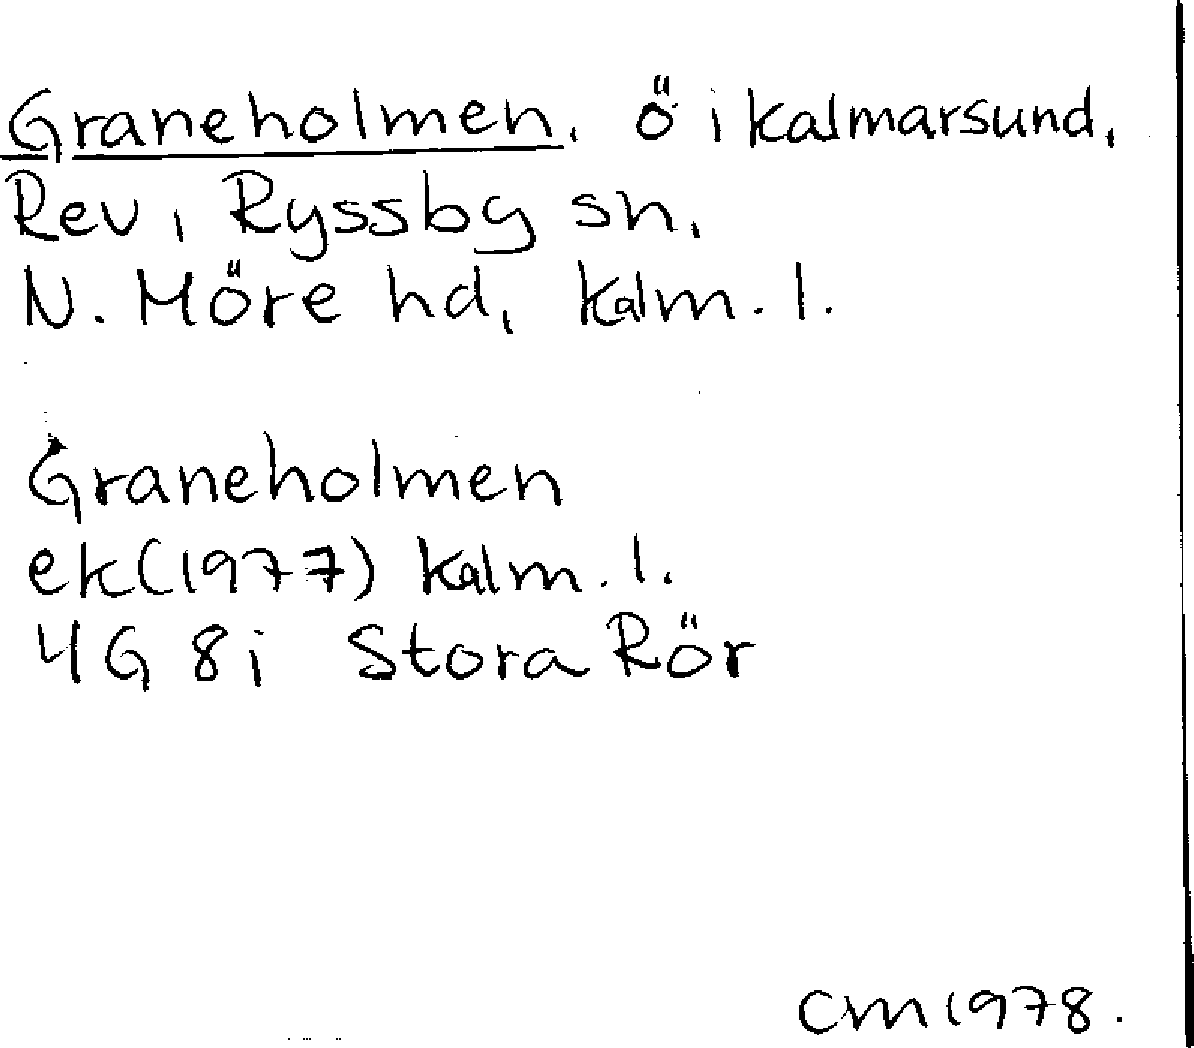 Graneholmen, ö i Kalmarsund,
Rev, Ryssby sn,
N. Möre hd, Kalm. l.
Graneholmen
ek (1977) Kalm. l.
4G 8i Stora Rör
CM 1978.